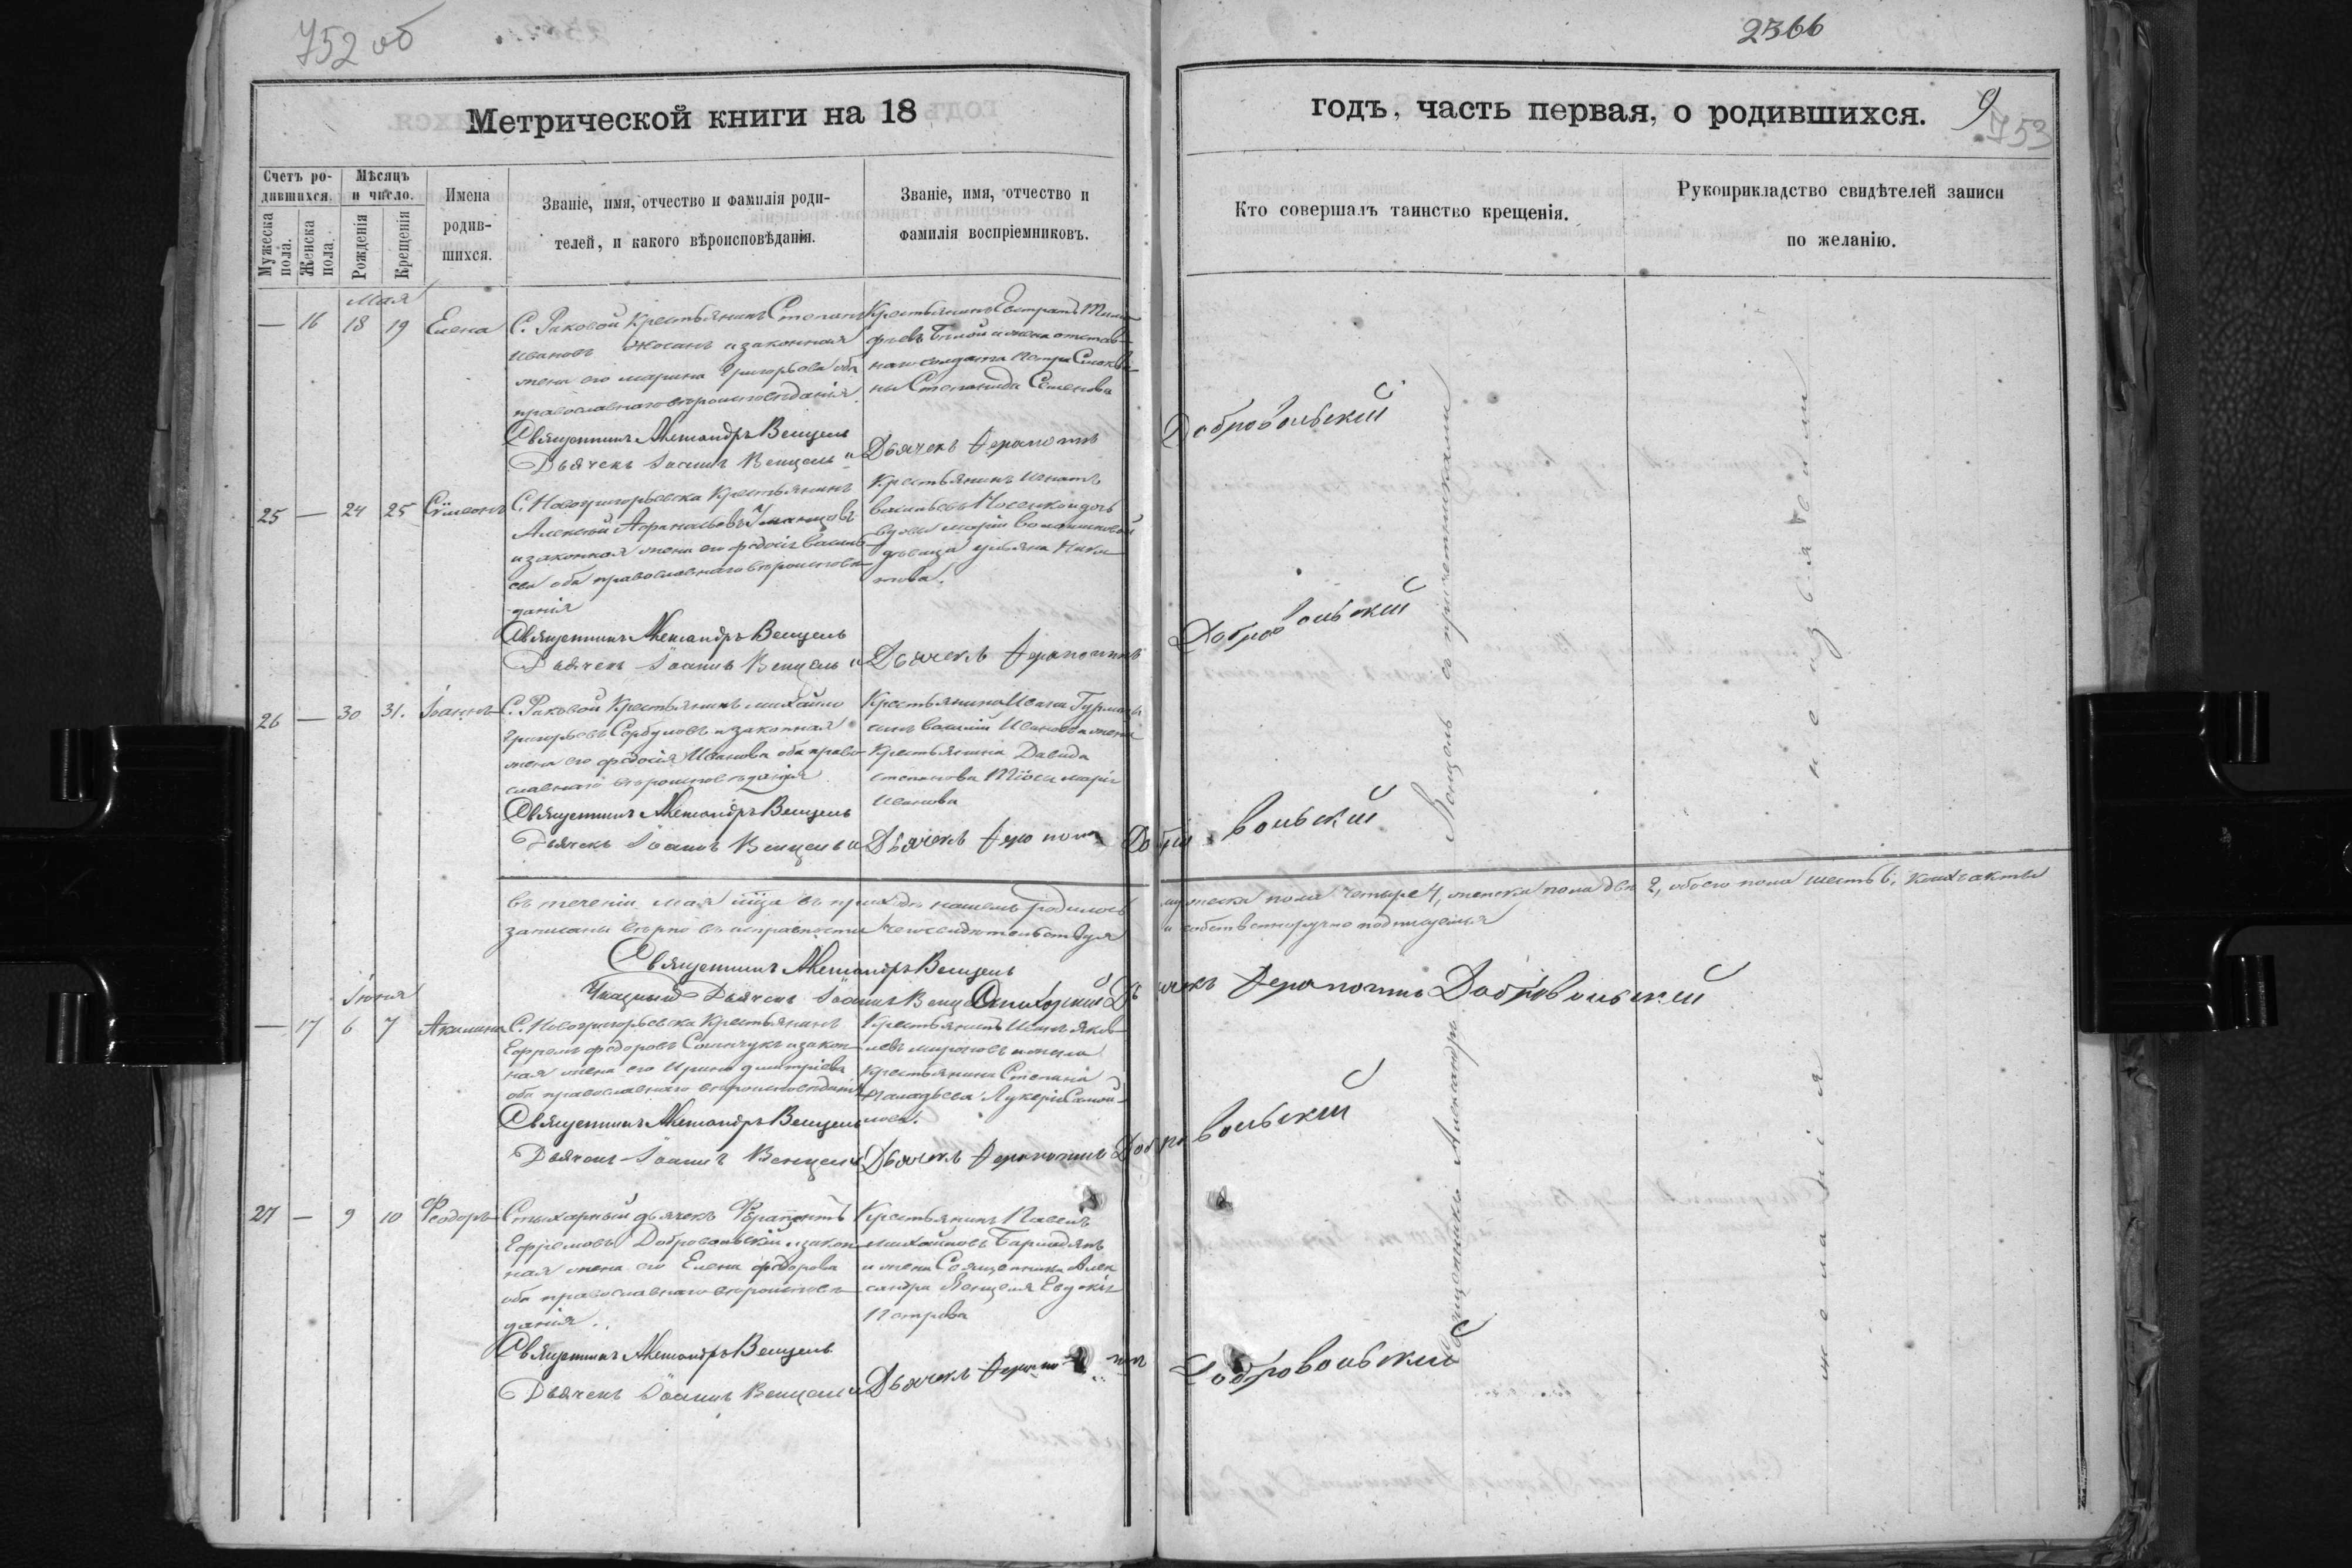 752 об
2366
Метрической книги на 18
годъ, часть первая, о родившихся.
9
753
Счетъ ро-
дившихся.
Мужеска
пола.
Женска
пола.
Мѣсяцъ
и число.
Рожденія
Крещенія
Имена
родив-
шихся.
Званіе, имя, отчество и фамилія роди-
телей, и какого вѣроисповѣданія.
Званіе, имя, отчество и
фамилія воспріемниковъ.
Кто совершалъ таинство крещенія.
Рукоприкладство свидѣтелей записи
по желанію.
Мая
— 16 18 19 Елена
С. Раковой Крестьянинъ Степанъ
Ивановъ и законная
жена его Марина Григорьева оба
православнаго вѣроисповѣданія.
Крестьянинъ
и жена отстав-
наго солдата Петра
Степанида Семенова
Священникъ Александръ Венцель
Дьячекъ Іоаннъ Венцель и
Дьячекъ Ѳерапонтъ
Добровольскій
25 — 24 25 Сѵмеонъ
С. Новогригорьевска Крестьянинъ
Алексѣй Афанасьевъ
и законная жена его Федосія Василь-
ева оба православнаго вѣроисповѣ-
данія
Крестьянинъ Игнатъ
Васильевъ и дочь
вдовы Маріи
дѣвица Ульяна
Священникъ Александръ Венцель
Дьячекъ Іоаннъ Венцель и
Дьячекъ Ѳерапонтъ
Добровольскій
26 — 30 31. Іоаннъ
С. Раковой Крестьянинъ Михайло
Григорьевъ Сербуловъ и законная
жена его Федосія Иванова оба право-
славнаго вѣроисповѣданія
Крестьянина Ивана
сынъ Василій Ивановъ и жена
Крестьянина Давида
Степанова Марія
Иванова
Священникъ Александръ Венцель
Дьячекъ Іоаннъ Венцель и
Дьячекъ Ѳерапонтъ
Добровольскій
Въ теченіи мая мѣсяца въ приходѣ нашемъ родилось мужеска пола четыре 4, женска пола двѣ 2, обоего пола шесть 6, коихъ акты
записаны вѣрно въ исправности свидѣтельствуя и собственноручно подпишемся
Священникъ Александръ Венцель
Дьячекъ Іоаннъ Венцель Дьячекъ Ѳерапонтъ Добровольскій
Іюня
— 17 6 7 Акилина
С. Новогригорьевска Крестьянинъ
Ефремъ Федоровъ и закон-
ная жена его Ирина Дмитріева
оба православнаго вѣроисповѣданія
Крестьянинъ Иванъ Яков-
левъ Мироновъ и жена
Крестьянина
Лукерія Самой-
лова.
Священникъ Александръ Венцель
Дьячекъ Іоаннъ Венцель и
Дьячекъ Ѳерапонтъ
Добровольскій
27 — 9 10 Феодоръ
Стихарный дьячекъ Ферапонтъ
Ефремовъ Добровольскій и закон-
ная жена его Елена Федорова
оба православнаго вѣроисповѣ-
данія.
Крестьянинъ Павелъ
Михайловъ
и жена Священника Алек-
сандра Венцеля Евдокія
Петрова
Священникъ Александръ Венцель
Дьячекъ Іоаннъ Венцель и
Дьячекъ Ѳерапонтъ
Добровольскій
Священникъ Александръ Венцель со причетниками
желанія не изъявили